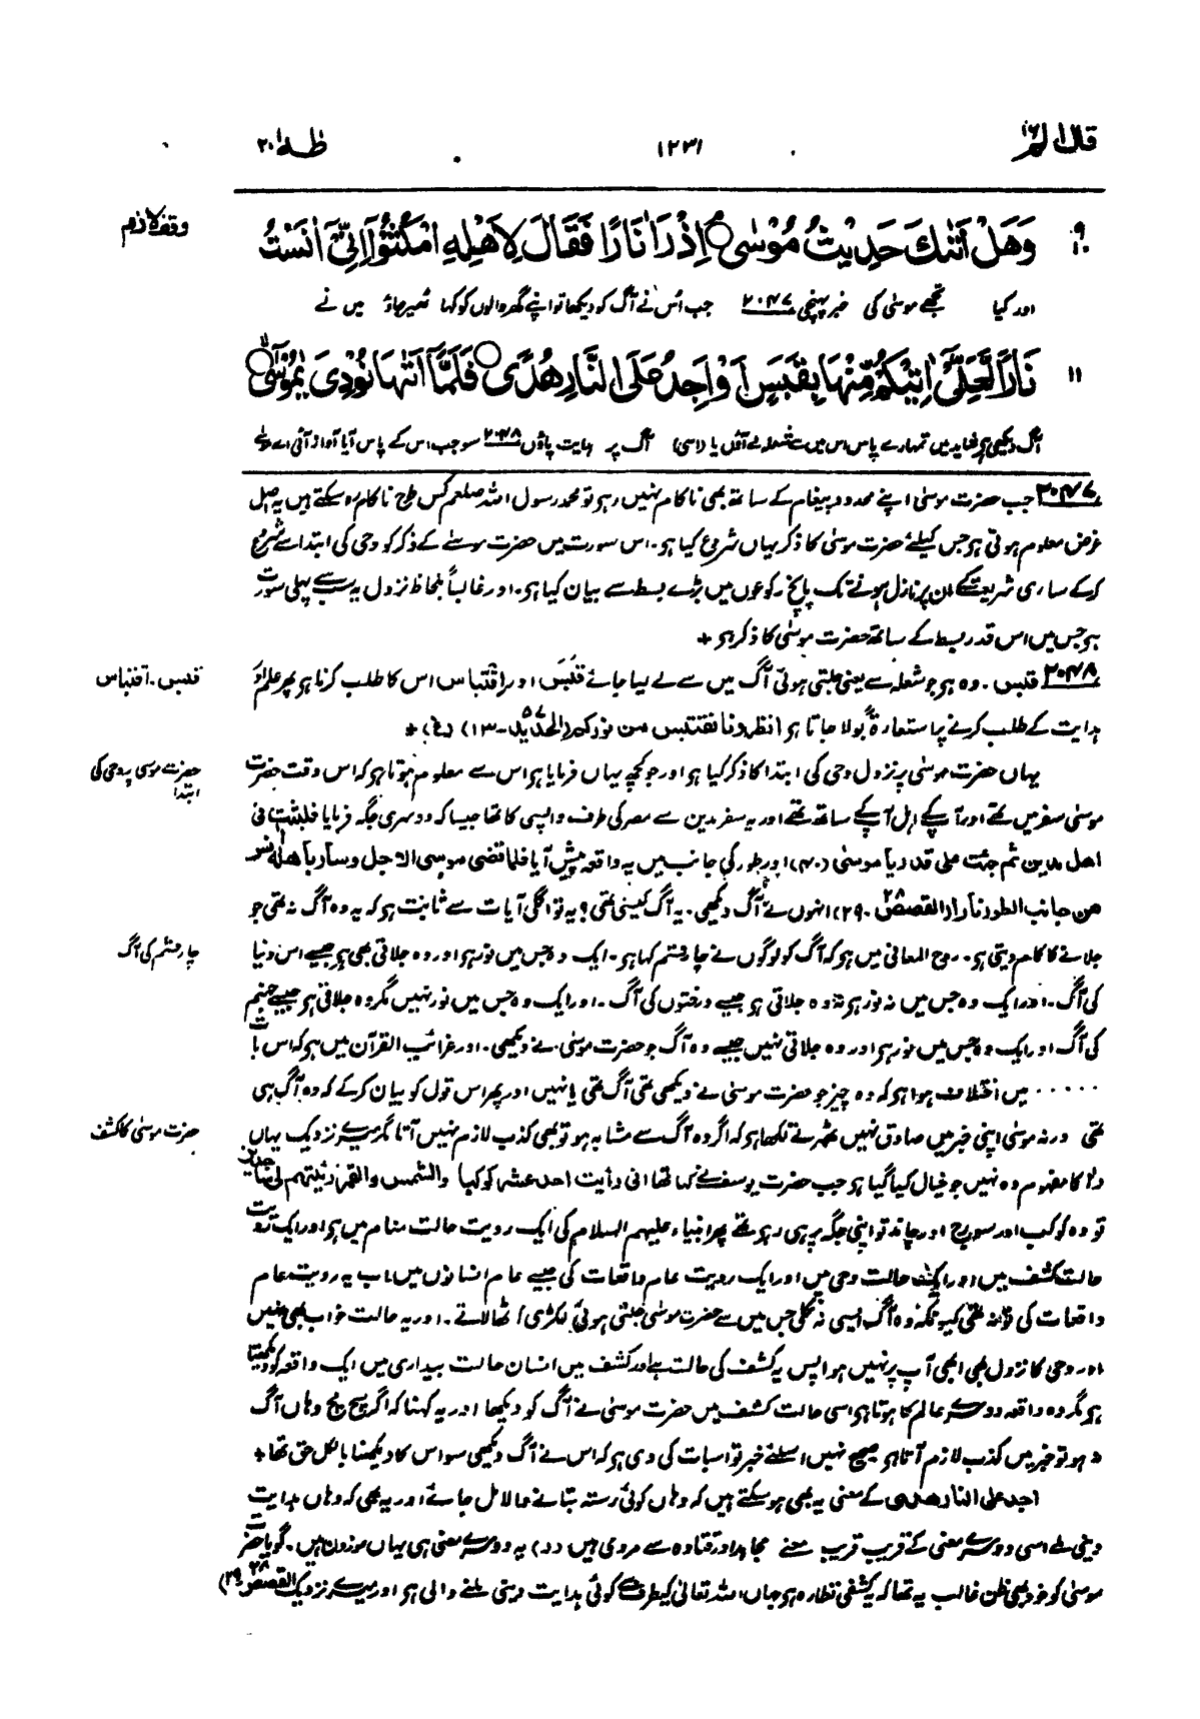 قال الم ۱۶
۱۲۳۱
طٰهٰ ۲۰
وَهَلْ اَتٰىكَ حَدِيْثُ مُوْسٰى ۘ اِذْ رَاٰ نَارًا فَقَالَ لِاَهْلِهِ امْكُثُوْٓا اِنِّىْٓ اٰنَسْتُ
۹ ۱۰
وقف لازم
اور کیا تجھے موسیٰ کی خبر پہنچی ۲۰۴۷ جب اُس نے آگ کو دیکھا تو اپنے گھر والوں کو کہا ٹھیر جاؤ میں نے
نَارًا لَّعَلِّىْٓ اٰتِيْكُمْ مِّنْهَا بِقَبَسٍ اَوْ اَجِدُ عَلَى النَّارِ هُدًى ○ فَلَمَّآ اَتٰىهَا نُوْدِىَ يٰمُوْسٰى ○
۱۱
آگ دیکھی ہے شاید میں تمہارے پاس اس میں سے شعلہ لے آؤں یا (اسی) آگ پر ہدایت پاؤں ۲۰۴۸ سو جب اس کے پاس آیا آواز آئی اے موسیٰ
۲۰۴۷ جب حضرت موسیٰ اپنے محدود پیغام کے ساتھ بھی ناکام نہیں رہو تو محمد رسول اللہ صلعم کس طرح ناکام رہ سکتے ہیں یہ اصل
غرض معلوم ہوتی ہو جس کیلئے حضرت موسیٰ کا ذکر یہاں شروع کیا ہو۔ اس سورت میں حضرت موسیٰ کے ذکر کو وحی کی ابتدا سے شروع
کرکے ساری شریعت کے ان پر نازل ہونے تک پانچ رکوعوں میں بڑے بسط سے بیان کیا ہو۔ اور غالباً بلحاظ نزول یہ سب سے پہلی سورت
ہو جس میں اس قدر بسط کے ساتھ حضرت موسیٰ کا ذکر ہو +
۲۰۴۸ قبس۔ وہ ہو جو شعلہ سے یعنی جلتی ہوئی آگ میں سے لے لیا جائے قَبَس اور اقتباس اس کا طلب کرنا ہو پھر علم اور
قبس۔ اقتباس
ہدایت کے طلب کرنے پر استعارةً بولا جاتا ہو انظرونا نقتبس من نورکم (الحدید ۵۷-۱۳) (غ) +
یہاں حضرت موسیٰ پر نزول وحی کی ابتدا کا ذکر کیا ہو اور جو کچھ یہاں فرمایا ہو اس سے معلوم ہوتا ہو کہ اس وقت حضرت
حضرت موسیٰ پر وحی کی ابتدا
موسیٰ سفر میں تھے اور آپ کے اہل آپ کے ساتھ تھے اور یہ سفر مدین سے مصر کی طرف واپسی کا تھا جیسا کہ دوسری جگہ فرمایا فلبثت فی
اهل مدین ثم جئت علی قدر یا موسیٰ (۴۰) اور طور کی جانب میں یہ واقعہ پیش آیا فلما قضی موسی الاجل وسار باهله انس
من جانب الطور نارا (القصص ۲۸-۲۹) انہوں نے آگ دیکھی۔ یہ آگ کیسی تھی؟ یہ تو اگلی آیات سے ثابت ہو کہ یہ وہ آگ نہ تھی جو
جلانے کا کام دیتی ہو۔ روح المعانی میں ہو کہ آگ کو لوگوں نے چار قسم کہا ہو۔ ایک وہ جس میں نور ہو اور وہ جلاتی بھی ہو جیسے اس دنیا
چار قسم کی آگ
کی آگ۔ اور ایک وہ جس میں نہ نور ہو نہ وہ جلاتی ہو جیسے درختوں کی آگ۔ اور ایک وہ جس میں نور نہیں مگر وہ جلاتی ہو جیسے جہنم
کی آگ اور ایک وہ جس میں نور ہو اور وہ جلاتی نہیں جیسے وہ آگ جو حضرت موسیٰ نے دیکھی۔ اور غرائب القرآن میں ہو کہ اس بات
..... میں اختلاف ہوا ہو کہ وہ چیز جو حضرت موسیٰ نے دیکھی تھی آگ تھی یا نہیں اور پھر اس قول کو بیان کرکے کہ وہ آگ ہی
تھی ورنہ موسیٰ اپنی خبر میں صادق نہیں ٹھہرتے لکھا ہو کہ اگر وہ آگ سے مشابہ ہو تو بھی کذب لازم نہیں آتا مگر میرے نزدیک یہاں
حضرت موسیٰ کا کشف
کا مفہوم وہ نہیں جو خیال کیا گیا ہو جب حضرت یوسف نے کہا تھا انی رایت احد عشر کوکبا والشمس والقمر رایتهم لی ساجدین
تو وہ کوکب اور سورج اور چاند تو اپنی جگہ پر ہی رہو تھے پھر انبیاء علیہم السلام کی ایک رویت حالت منام میں ہو اور ایک رویت
حالت کشف میں اور ایک حالت وحی میں اور ایک رویت عام واقعات کی جیسے عام انسانوں میں۔ اب یہ رویت عام
واقعات کی تو نہ تھی کیونکہ نہ وہ آگ ایسی نہ نکلی جس میں سے حضرت موسیٰ جلتی ہوئی لکڑی اٹھا لاتے۔ اور یہ حالت خواب بھی نہیں
اور وحی کا نزول بھی ابھی آپ پر نہیں ہوا پس یہ کشف کی حالت ہے اور کشف میں انسان حالت بیداری میں ایک واقعہ کو دیکھتا
ہو مگر وہ واقعہ دوسرے عالم کا ہوتا ہو اسی حالت کشف میں حضرت موسیٰ نے آگ کو دیکھا اور یہ کہنا کہ اگر سچ مچ وہاں آگ
نہ ہو تو خبر میں کذب لازم آتا ہو صحیح نہیں اسلئے خبر تو اس بات کی دی ہو کہ اس نے آگ دیکھی سو اس کا دیکھنا بالکل حق تھا +
اجد علی النار هدی کے معنی یہ بھی ہو سکتے ہیں کہ وہاں کوئی رستہ بتانے والا مل جائے اور یہ بھی کہ وہاں ہدایت
دینی ملے اسی دوسرے معنی کے قریب قریب معنے مجاہد اور قتادہ سے مروی ہیں (د) یہ دوسرے معنی ہی یہاں موزون ہیں۔ گویا حضرت
موسیٰ کو خود بھی ظن غالب یہ تھا کہ یہ کشفی نظارہ ہو جہاں اللہ تعالیٰ کی طرف سے کوئی ہدایت دینی ملنے والی ہو اور میرے نزدیک (القصص ۲۸-۲۹)